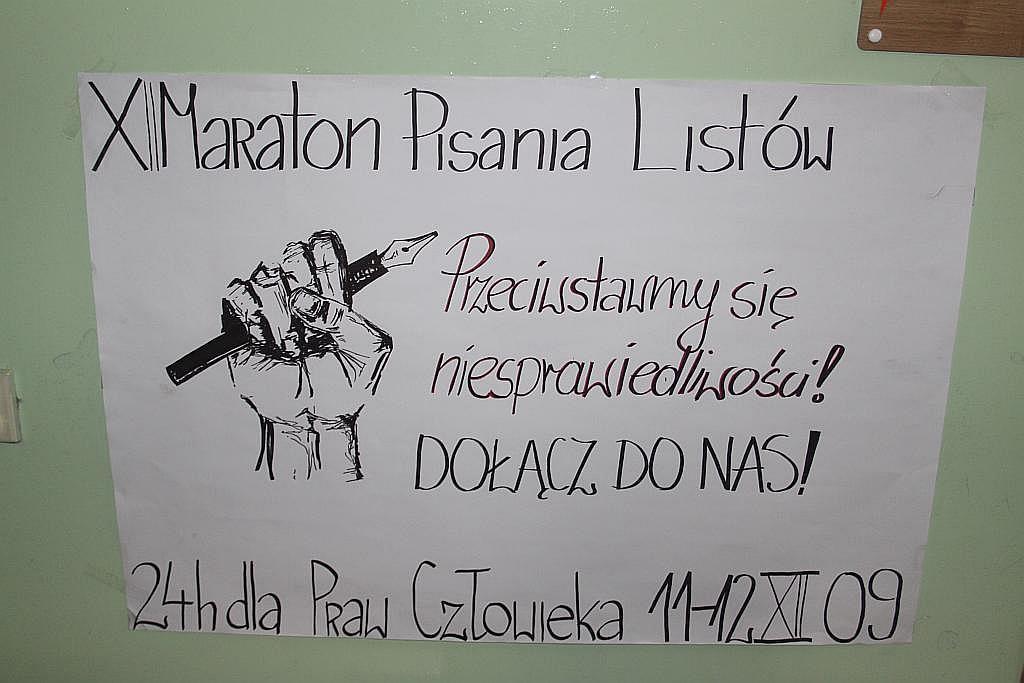 XII Maraton Pisania Listów
Przeciwstawmy się
niesprawiedliwości!
DOŁĄCZ DO NAS!
24h dla Praw Człowieka 11-12 XII 09